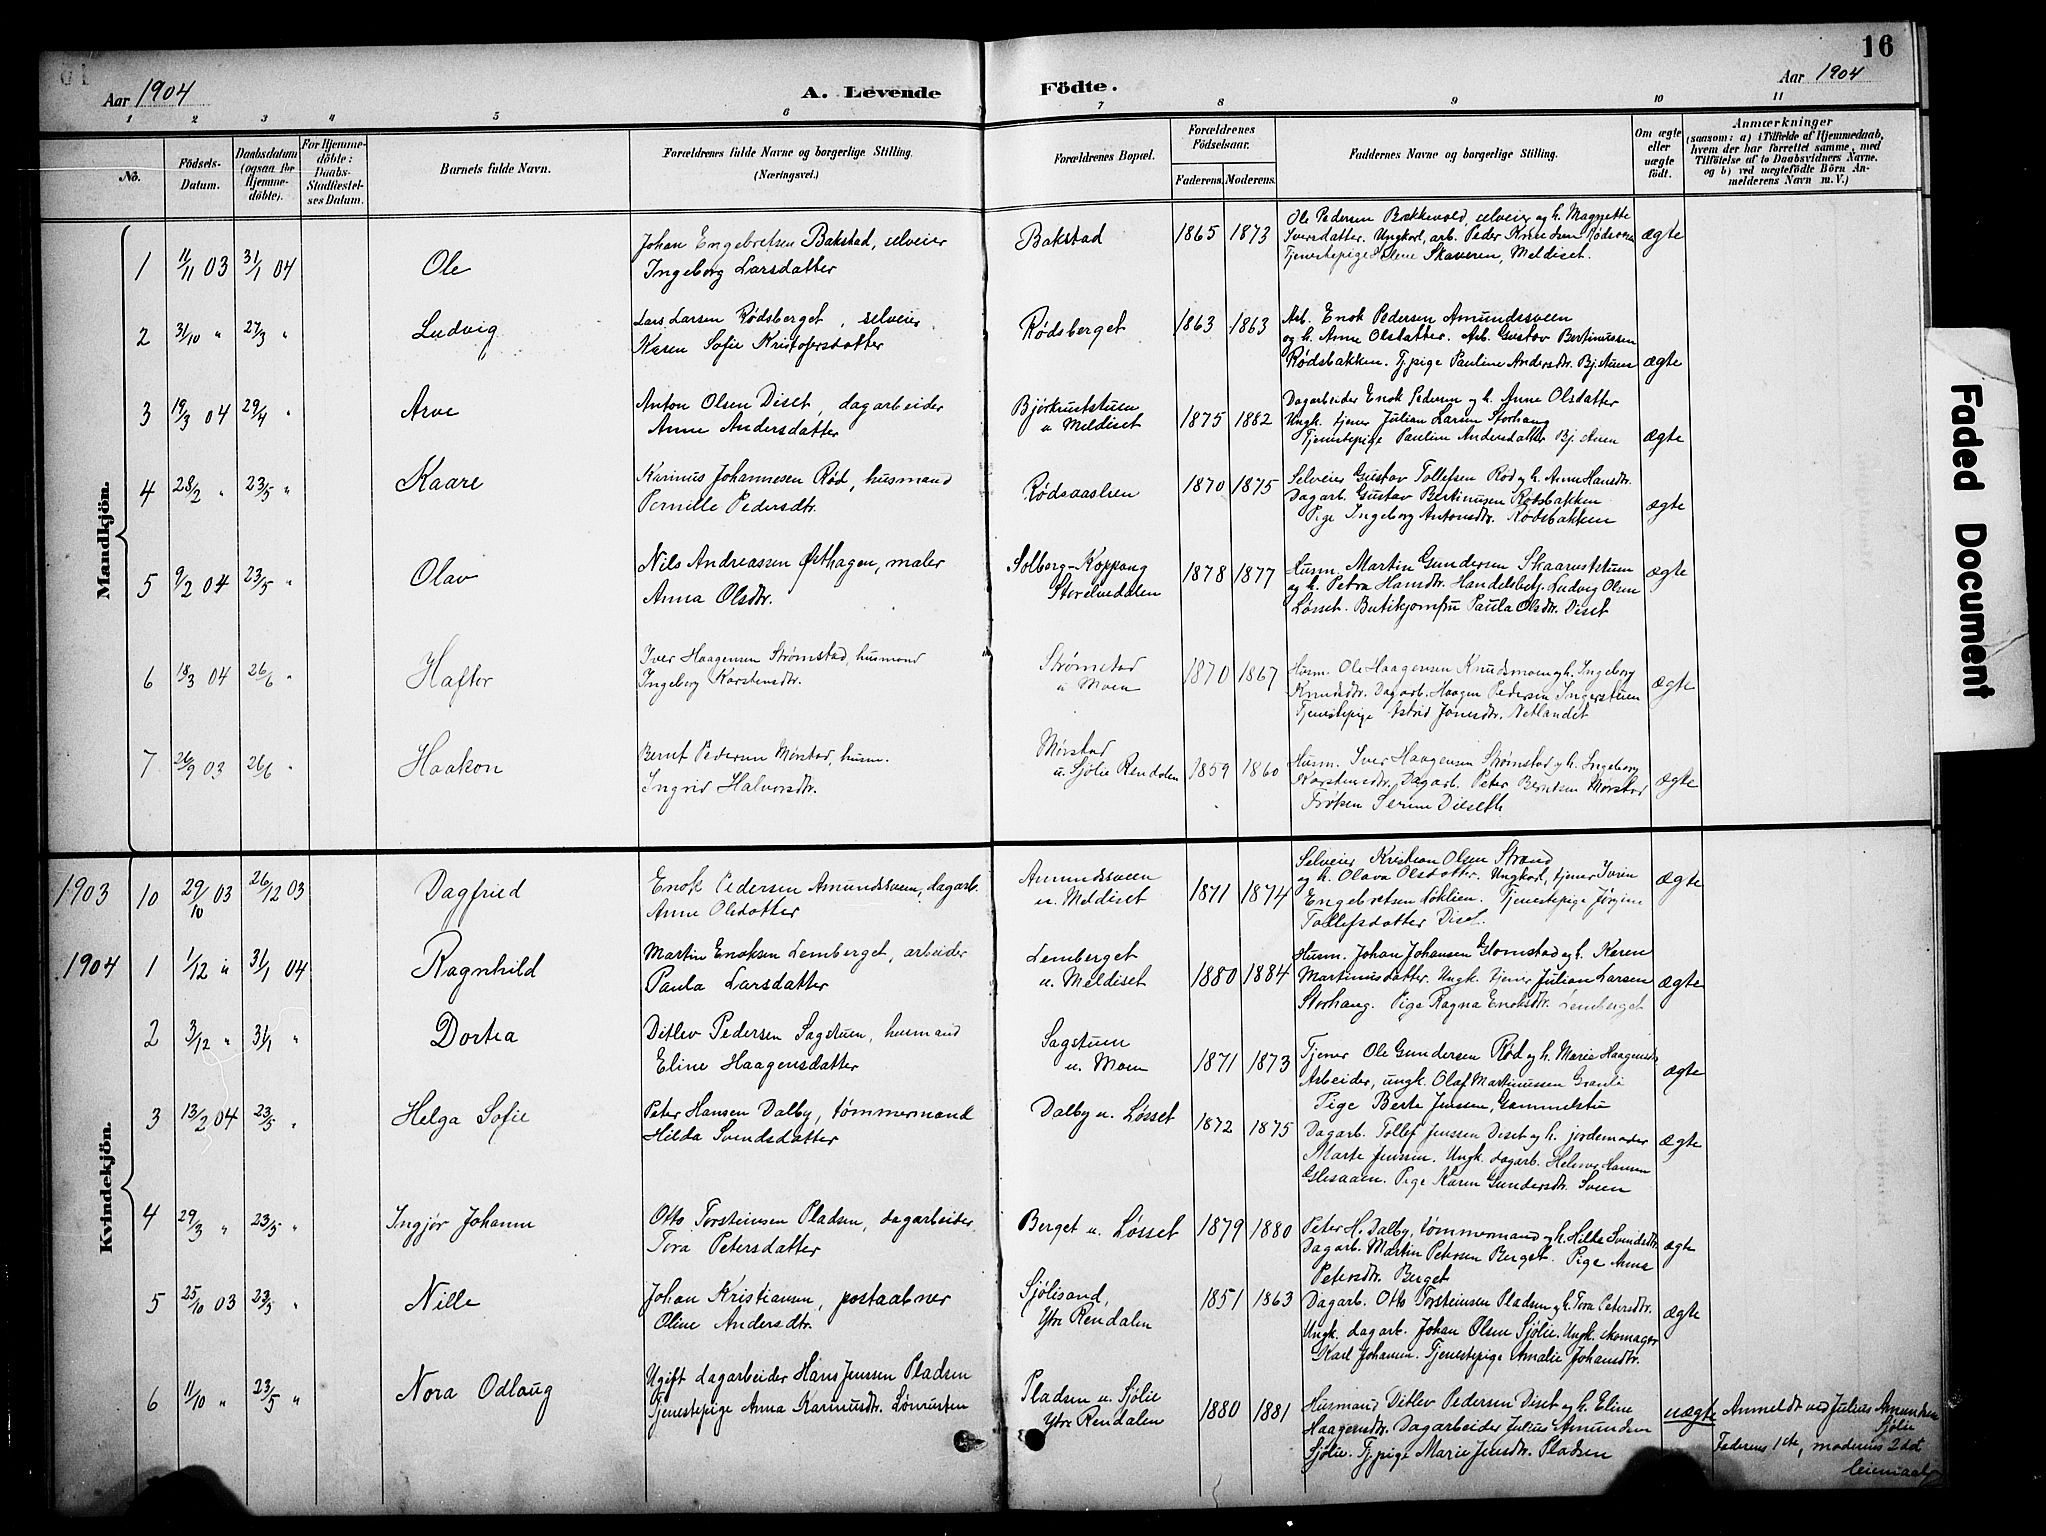 16
Aar 1904
A. Levende Födte.
Aar 1904
1 2 3 4 5 6 7 8 9 10 11
No.
Födsels-Datum.
Daabsdatum (ogsaa for Hjemme-döbte).
For Hjemme-döbte: Daabs-Stadfæstel-ses Datum.
Barnets fulde Navn.
Forældrenes fulde Navne og borgerlige Stilling. (Næringsvei.)
Forældrenes Bopæl.
Forældrenes Födselsaar.
Faderens. Moderens.
Faddernes Navne og borgerlige Stilling.
Om ægte eller uægte födt.
Anmærkninger
(saasom: a) i Tilfælde af Hjemmedaab, hvem der har forrettet samme, med Tilföielse af to Daabsvidners Navne. og b) ved uægtefödte Börn An-melderens Navn m. V.)
Mandkjön.
1 11/11 03 31/1 04 Ole
Johan Engebretsen Bakstad, selveier
Ingeborg Larsdatter
Bakstad 1865 1873
Ole Pedersen Bækkevold, selveier og h. Magnette
Iversdatter. Ungkarl, arb. Peder Knudsen Rødsmoen
Tjenestepige Helene Skaveren, Meldiset.
ægte
2 31/10 " 27/3 " Ludvig
Lars Larsen Rødsberget, selveier
Karen Sofie Kristofersdatter
Rødsberget 1863 1863
Arb. Enok Pedersen Amundssveen
og h. Anne Olsdatter. Arb. Gustav Bertinussen
Rødsbakken. Tj.pige Pauline Andersdtr. Bj.stuen
ægte
3 19/3 04 29/4 " Arve
Anton Olsen Diset, dagarbeider
Anne Andersdatter
Bjørkruststuen
u. Meldiset
1875 1882
Dagarbeider Enok Pedersen og h. Anne Olsdatter
Ungk. tjener Julian Larsen Storhaug
Tjenestepige Pauline Andersdatter Bj.stuen
ægte
4 28/2 " 23/5 " Kaare
Karinus Johannesen Rød, husmand
Pernille Pedersdtr.
Rødsaaslien 1870 1875
Selveier Gustav Tollefsen Rød og h. Anne Hansdtr.
Dagarb. Gustav Bertinusen Rødsbakken
Pige Ingeborg Antonsdtr. Rødsbakken
ægte
5 9/2 04 23/5 " Olav
Nils Andreassen Østhagen, maler
Anna Olsdtr.
Solberg-Koppang
Storelvedalen
1878 1877
Husm. Martin Gundersen Skaarvststuen
og h. Petra Hansdtr. Handelsbetj. Ludvig Olsen
Løsset. Butikjomfru Paula Olsdtr. Diset
ægte
6 18/3 04 26/6 " Haftor
Iver Haagensen Strømstad, husmand
Ingeborg Karstensdtr.
Strømstad
u. Moen
1870 1867
Husm. Ole Haagensen Knudsmoen og h. Ingeborg
Knudsdtr. Dagarb. Haagen Pedersen Ingerstuen
Tjenestepige Astrid Jonsdtr. Netlandet
ægte
7 26/9 03 26/6 " Haakon
Bernt Pedersen Mørstad, husm.
Ingrid Halvorsdtr.
Mørstad
u. Sjølie Rendalen
1859 1860
Husm. Iver Haagensen Strømstad og h. Ingeborg
Karstensdtr. Dagarb. Peter Berntsen Mørstad
Frøken Serine Diseth
ægte
Kvindekjön.
1903 10 29/10 03 26/12 03 Dagfried
Enok Pedersen Amundssveen, dagarb.
Anne Olsdatter
Amundssveen
u. Meldiset
1871 1874
Selveier Kristian Olsen Strand
og h. Olava Olsdatter. Ungkarl, tjener Iven
Engebretsen Løklien. Tjenestepige Jørgine
Tollefsdatter Diset.
ægte
1904 1 1/12 " 31/1 04 Ragnhild
Martin Enoksen Lemberget, arbeider
Paula Larsdatter
Lemberget
u. Meldiset
1880 1884
Husm. Johan Johansen Glomstad og h. Karen
Martinusdatter. Ungk. tjener Julian Larsen
Storhaug. Pige Ragna Enoksdtr. Lemberget
ægte
2 3/12 " 31/1 " Dortea
Ditlev Pedersen Sagstuen, husmand
Eline Haagensdatter
Sagstuen
u. Moen
1871 1873
Tjener Ole Gundersen Rød og h. Marie Haagensdtr.
Arbeider, ungk. Olaf Martinussen Granli
Pige Berte Jenssen, Gammelstu
ægte
3 13/2 04 23/5 " Helga Sofie
Peter Hansen Dalby, tømmermand
Hilda Svendsdatter
Dalby u. Løsset 1872 1875
Dagarb. Tollef Jenssen Diset og h. jordemoder
Marte Jenssen. Ungk. dagarb. Helmer Hansen
Glesaaen. Pige Karen Gundersdtr. Sveen
ægte
4 29/3 " 23/5 " Ingjør Johanne
Otto Torsteinsen Pladsen, dagarbeider,
Tora Petersdatter
Berget u. Løsset 1879 1880
Peter H. Dalby, tømmermand og h. Hilda Svendsdtr.
Dagarb. Martin Petersen Berget. Pige Anna
Petersdtr. Berget
ægte
5 25/10 03 23/5 " Nille
Johan Kristiansen, postaabner
Oline Andersdtr.
Sjølisand,
Ytre Rendalen
1851 1863
Dagarb. Otto Torsteinsen Pladsen og h. Tora Petersdtr.
Ungk. dagarb. Johan Olsen Sjølie. Ungk. skomager
Karl Johansen. Tjenestepige Amalie Johansdtr.
ægte
6 11/10 " 23/5 " Nora Odlaug
Ugift dagarbeider Hans Jenssen Pladsen
Tjenestepige Anna Karinusdtr. Lønrusten
Pladsen u. Sjølie
Ytre Rendalen
1880 1881
Husmand Ditlev Pedersen Diset og h. Eline
Haagensdtr. Dagarbeider Julius Amundsen
Sjølie. Tj.pige Marie Jensdtr. Pladsen
uægte
Anmeldt ved Julius Amundsen
Sjølie
Faderens 1ste, moderens 2det
leiermaal
Faded Document